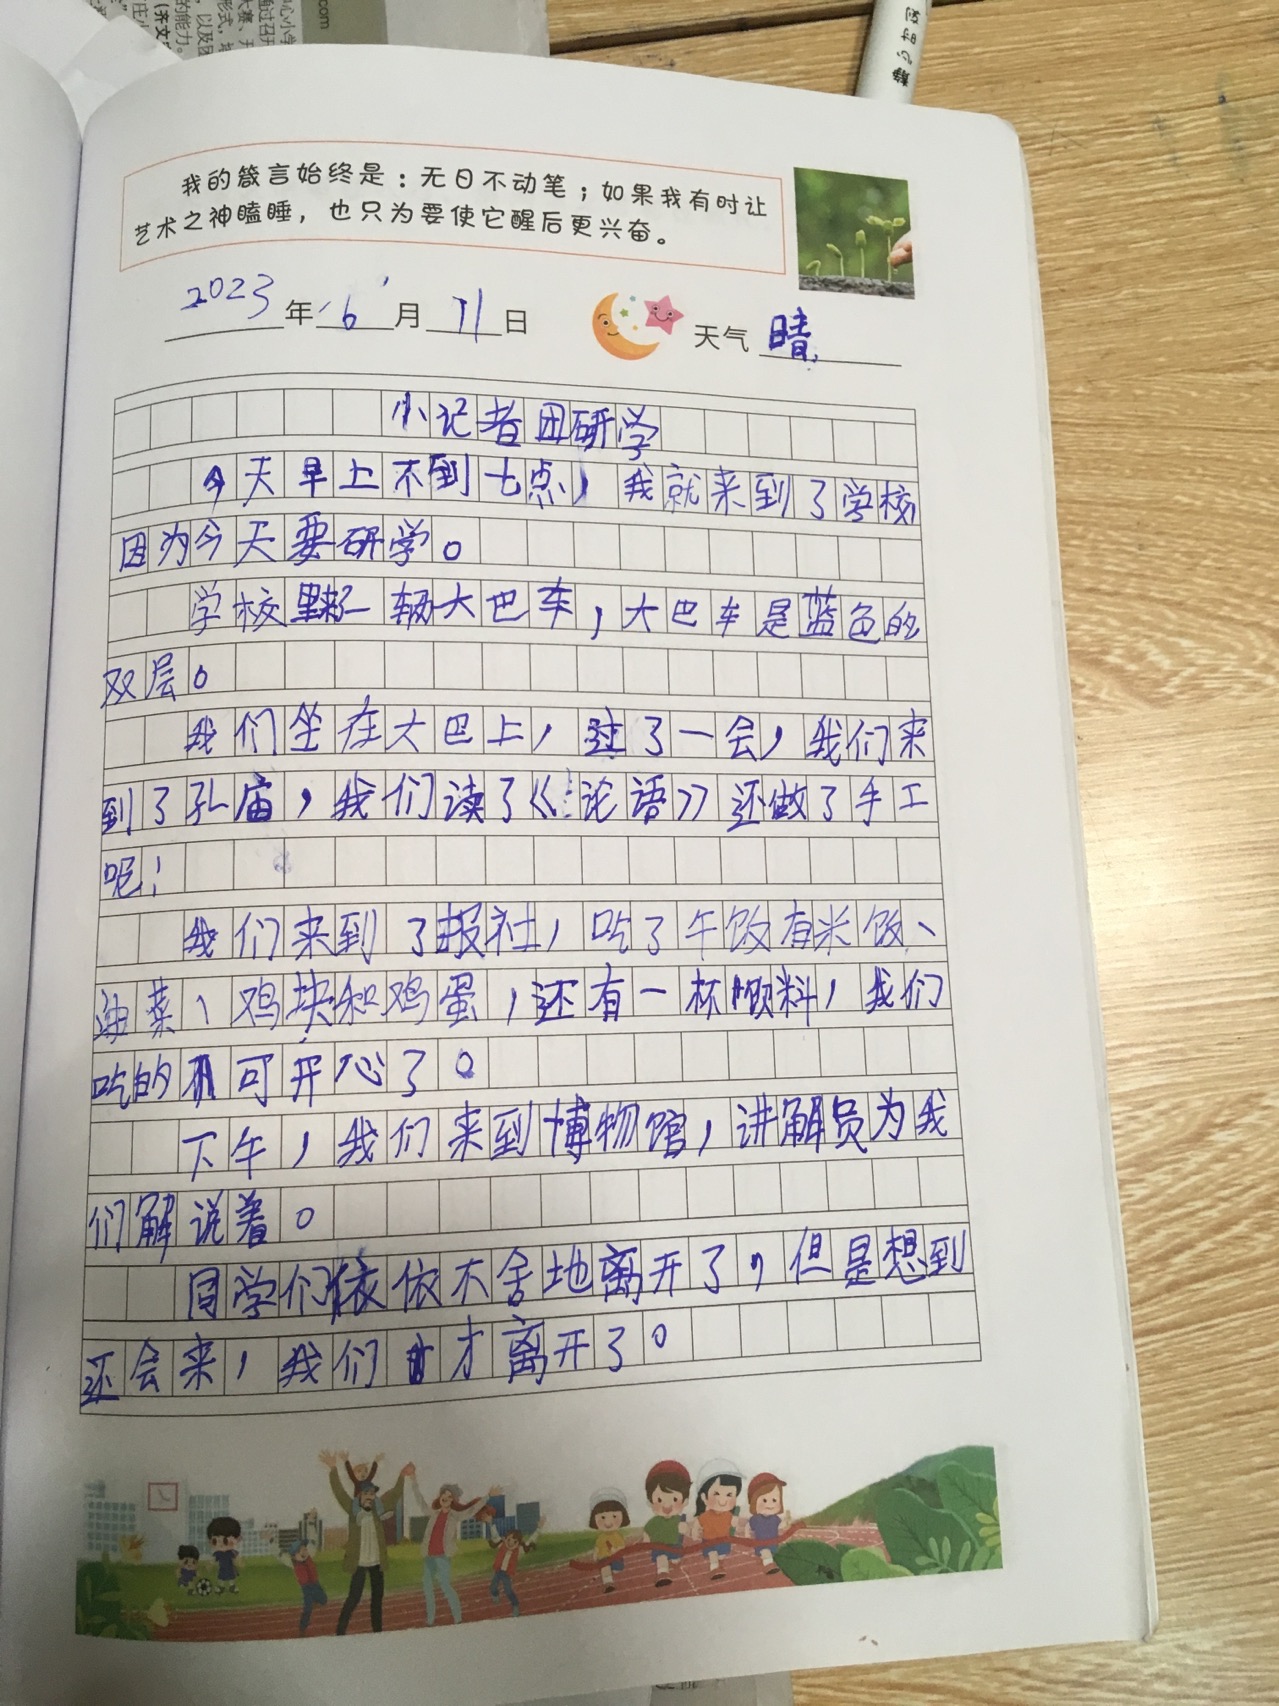 我的箴言始终是：无日不动笔；如果我有时让
艺术之神瞌睡，也只为要使它醒后更兴奋。
2023年6月11日 天气 晴
小记者团研学
今天早上不到七点，我就来到了学校
因为今天要研学。
学校里来了一辆大巴车，大巴车是蓝色的
双层。
我们坐在大巴上，过了一会，我们来
到了孔庙，我们读了《论语》还做了手工
呢！
我们来到了报社，吃了午饭有米饭、
油菜、鸡块和鸡蛋，还有一杯饮料，我们
吃的可开心了。
下午，我们来到博物馆，讲解员为我
们解说着。
同学们依依不舍地离开了，但是想到
还会来，我们才离开了。